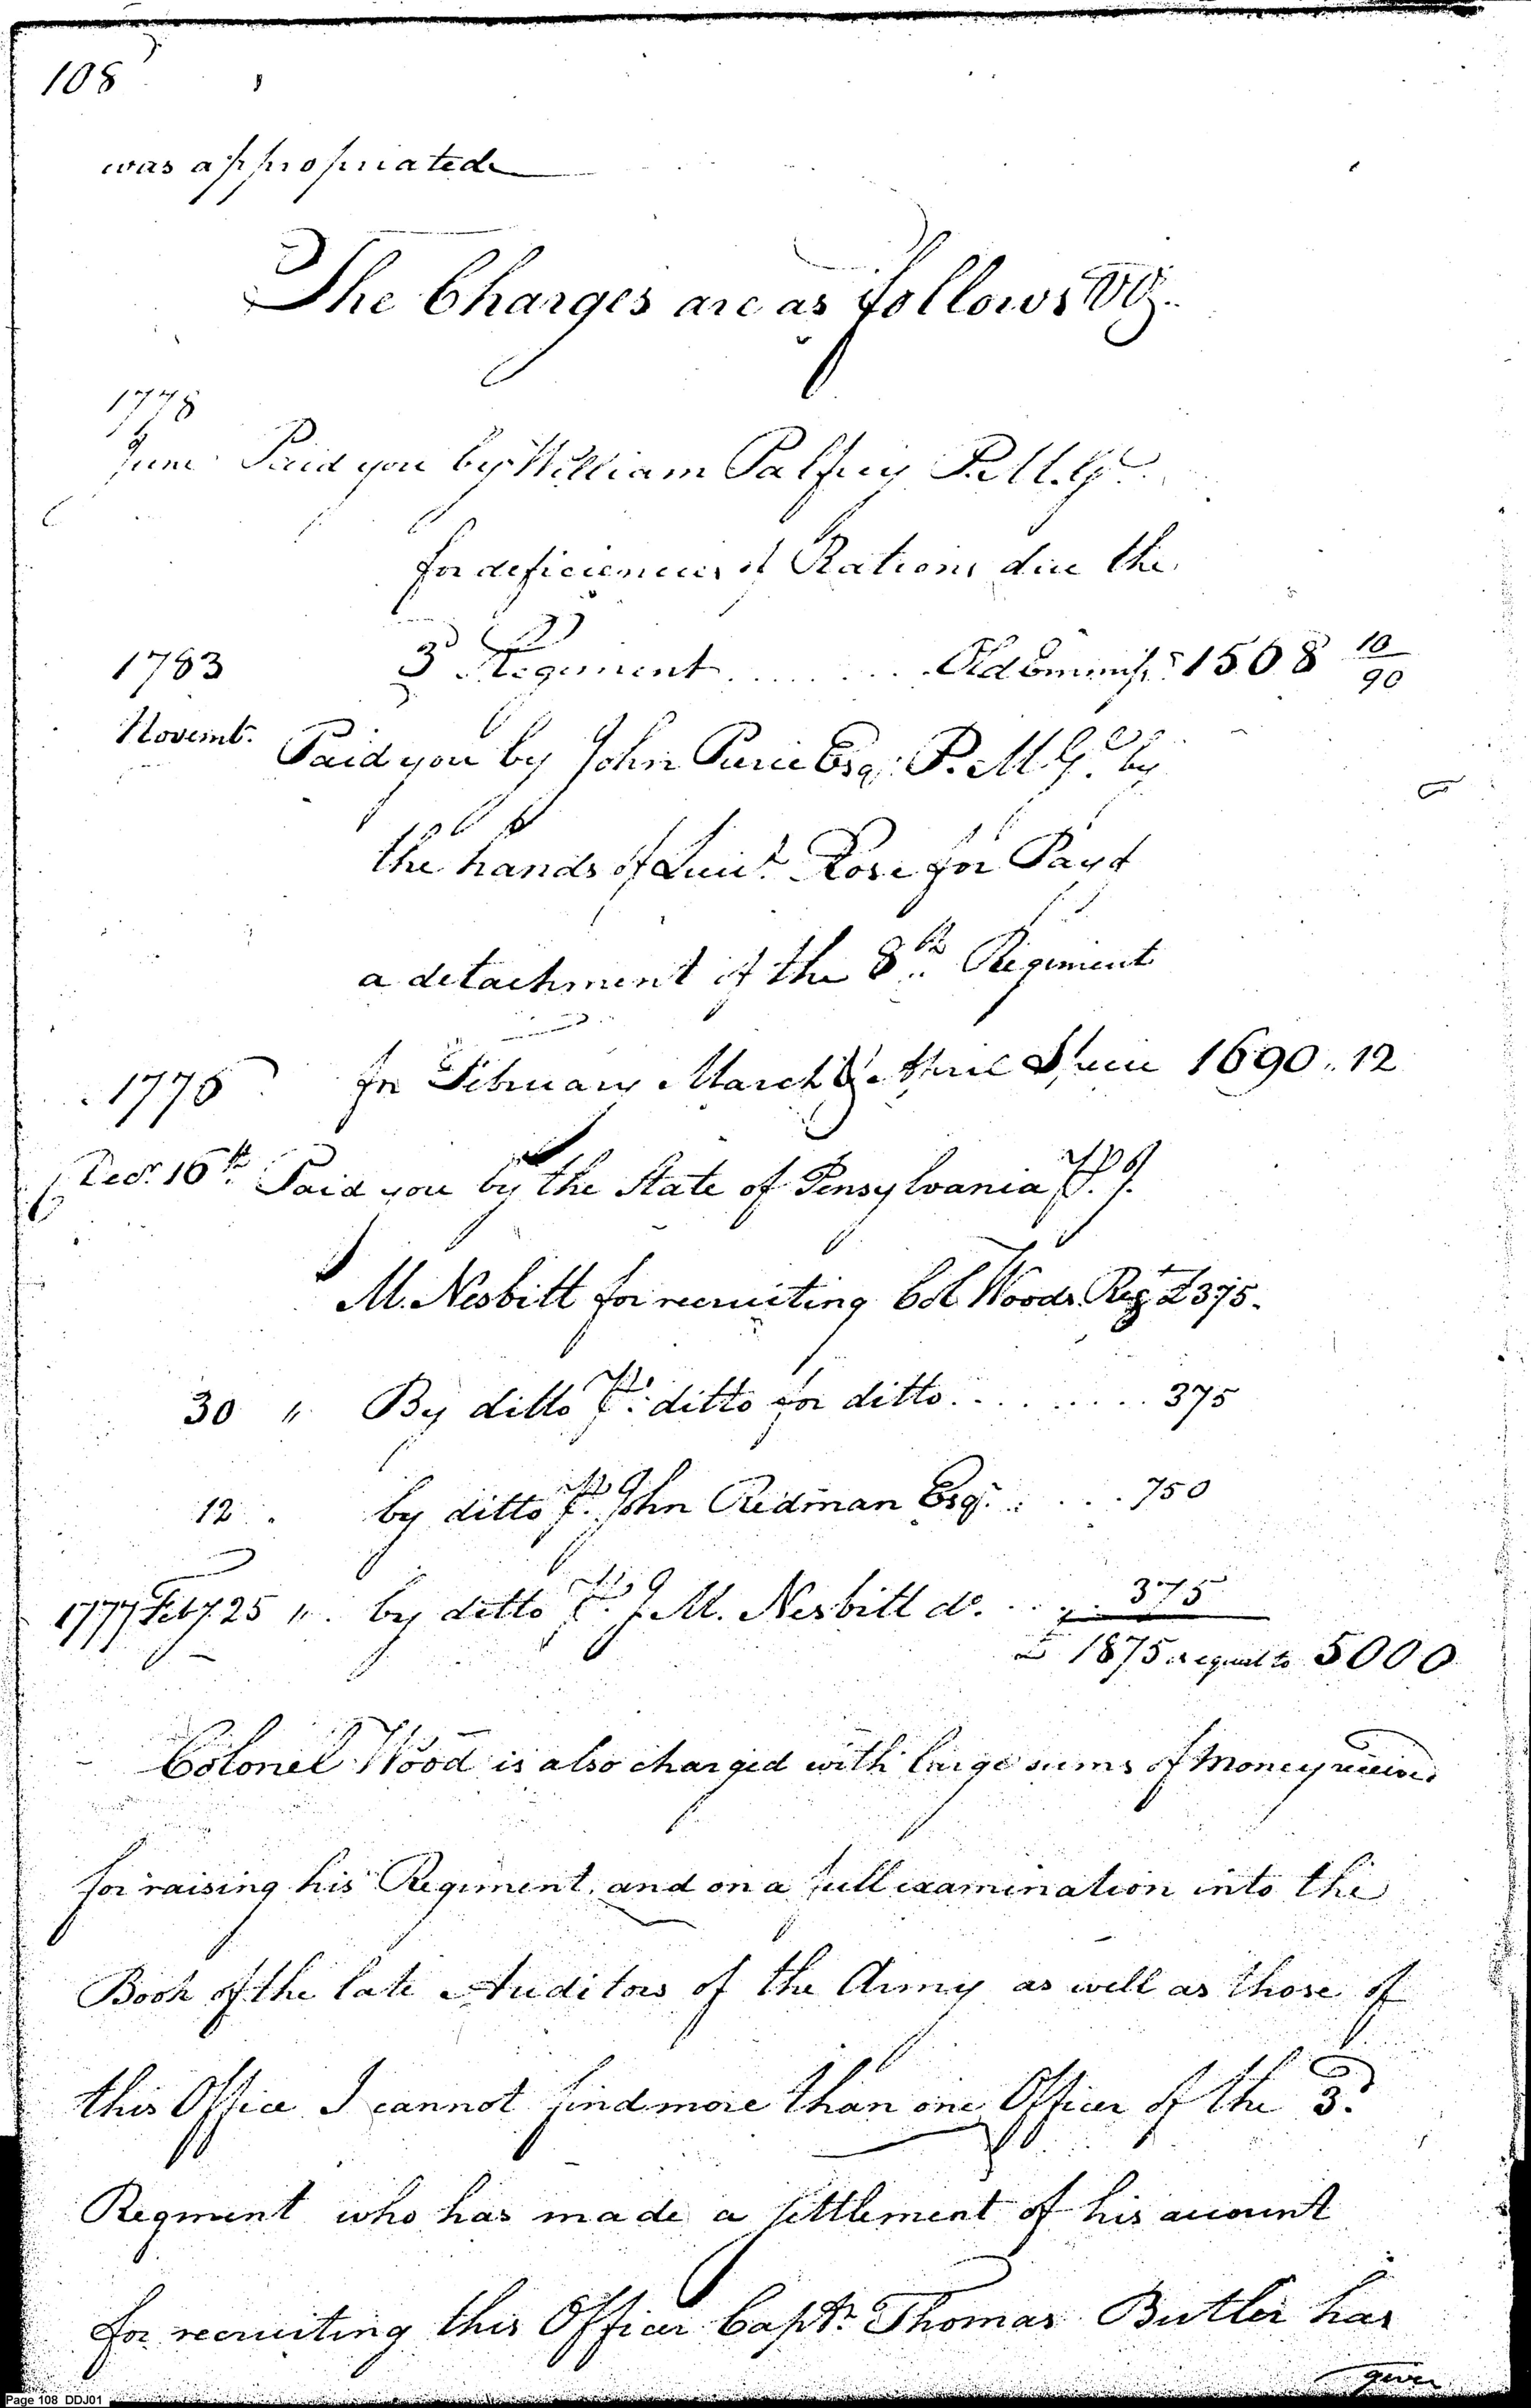 108
was appropriated
The Charges are as follows Viz.
1778
June Paid you by William Palfrey P.M.G.
for deficiencies of Rations due the
1783 3d Regiment Old Emmiss.s 1508 10/90
Novemb. Paid you by John Pierce Esq. P.M.G. by
the hands of Lieut. Rose for Pay of
a detachment of the 8th Regiment
1776 for February March & April June 1690.12
Decr. 16th. Paid you by the State of Pensylvania Pr. J.
M. Nesbitt for recruiting Col Woods Regt £375.
30 " By ditto Pr. ditto for ditto 375
12 . by ditto Pr. John Redman Esq. 750
1777 Feby. 25 " by ditto Pr. J. M. Nesbitt do. 375
£ 1875 is equal to 5000
Colonel Wood is also charged with large sums of Money
for raising his Regiment, and on a full examination into the
Book of the late Auditors of the Army as well as those of
this Office I cannot find more than one Officer of the 3d.
Regment who has made a settlement of his account
for recruiting this Officer Capt. Thomas Butler has
given
Page 108 DDJ01